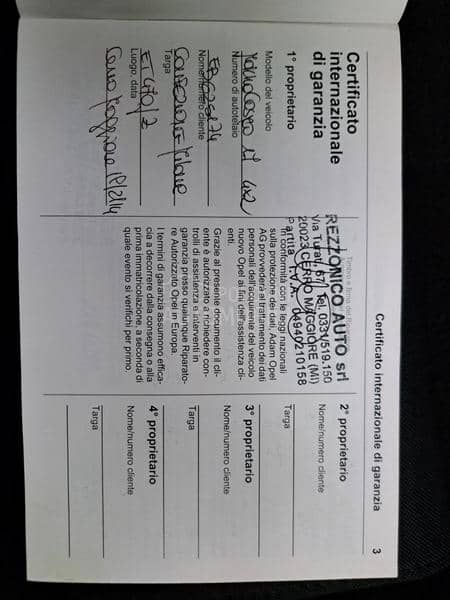 Certificato internazionale di garanzia 3
Certificato
internazionale
di garanzia
1° proprietario
Modello del veicolo
Numero di autotelaio
Nome/numero cliente
Targa
Luogo, data
Cerro Maggiore
REZZONICO AUTO srl
Via Turati, 67 Tel. 0331/519.150
20023 CERRO MAGGIORE (MI)
Partita I.V.A. 06940210158
In conformità con le leggi nazionali
sulla protezione dei dati, Adam Opel
AG provvederà al trattamento dei dati
personali dell'acquirente del veicolo
nuovo Opel ai fini dell'assistenza cli-
enti.
Grazie al presente documento il cli-
ente è autorizzato a richiedere con-
trolli di assistenza e interventi in
garanzia presso qualunque Riparato-
re Autorizzato Opel in Europa.
I termini di garanzia assumono effica-
cia a decorrere dalla consegna o alla
prima immatricolazione, a seconda di
quale evento si verifichi per primo.
2° proprietario
Nome/numero cliente
Targa
3° proprietario
Nome/numero cliente
Targa
4° proprietario
Nome/numero cliente
Targa